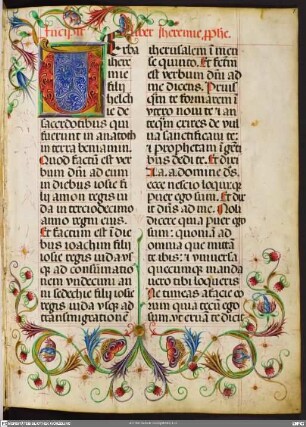 Incipit liber Iheremie ꝓphe.
Uerba
Ihere
mie
filij
helch
ie de
sacerdotibus qui
fuerunt in anatoth
in terra beniamin.
Quod factū est ver
bum dn̄i ad eum
in diebus iosie fi
lij amon regis iu
da in tercio decimo
anno regni eius
Et factum est ī die
bus ioachim filij
iosie regis iuda vs
qꝫ ad consumatio
nem vndecimi an
ni sedechie filij iosie
regis iuda vsqꝫ ad
transmigratione
iherusalem ī men
se quinto. Et factū
est verbum dn̄i ad
me dicens. Prius
qm̄ te formarem ī
vtero noui te: & an
teqm̄ exires de vul
ua sanctificaui te:
& prophetam ī gēti
bus dedi te. Et dixi
A.a.a domine d̄s.
ecce nescio loqui: qꝫ
puer ego sum. Et dix
it dn̄s ad me. Noli
dicere quia puer ego
sum: quoniā ad
omnia que mittā
te ibis: et vniuersa
quecumqꝫ manda
uero tibi loqueris
Ne timeas a facie eo
rum quia tecū ego
sum vt eruā te dicit